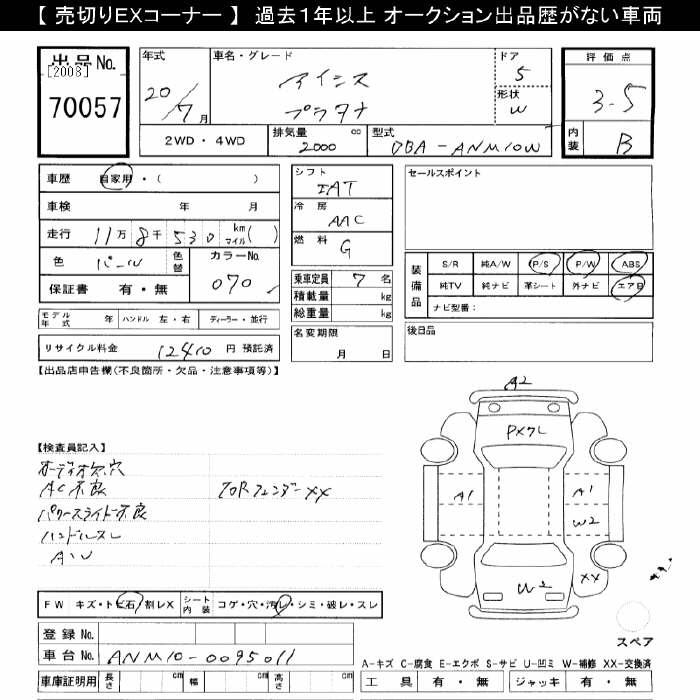 【 売切りEXコーナー 】 過去1年以上 オークション出品歴がない車両
出品No.
[2008]
70057
年式
20/7月
車名・グレード
アイシス
プラタナ
ドア
5
形状
W
評価点
3.5
内装
B
2WD・4WD
排気量
2000 cc
型式
DBA-ANM10W
車歴 自家用・( )
車検 年 月
走行 11万 8千 530 km マイル( )
色 パール 色替
カラーNo.
070
保証書 有・無
シフト
IAT
冷房
AAC
燃料
G
乗車定員 7 名
積載量 kg
総重量 kg
セールスポイント
装備品
S/R 純A/W P/S P/W ABS
純TV 純ナビ 革シート 外ナビ エアB
ナビ型番:
モデル年式 年 ハンドル 左・右 ディーラー・並行
リサイクル料金 12410 円 預託済
名変期限
月 日
後日品
【出品店申告欄(不良箇所・欠品・注意事項等)】
【検査員記入】
オーディオ欠.穴
AC不良 
パワースライド不良
ハンドルスレ
A.U
FW キズ・トビ石・割レX シート内装 コゲ・穴・汚レ・シミ・破レ・スレ
登録No.
車台No. ANM10-0095011
車庫証明用 長さ cm 幅 cm 高さ cm
A2
PX7L
A1
A1
W2
XX
W2
スペア
A-キズ C-腐食 E-エクボ S-サビ U-凹ミ W-補修 XX-交換済
工具 有・無 ジャッキ 有・無